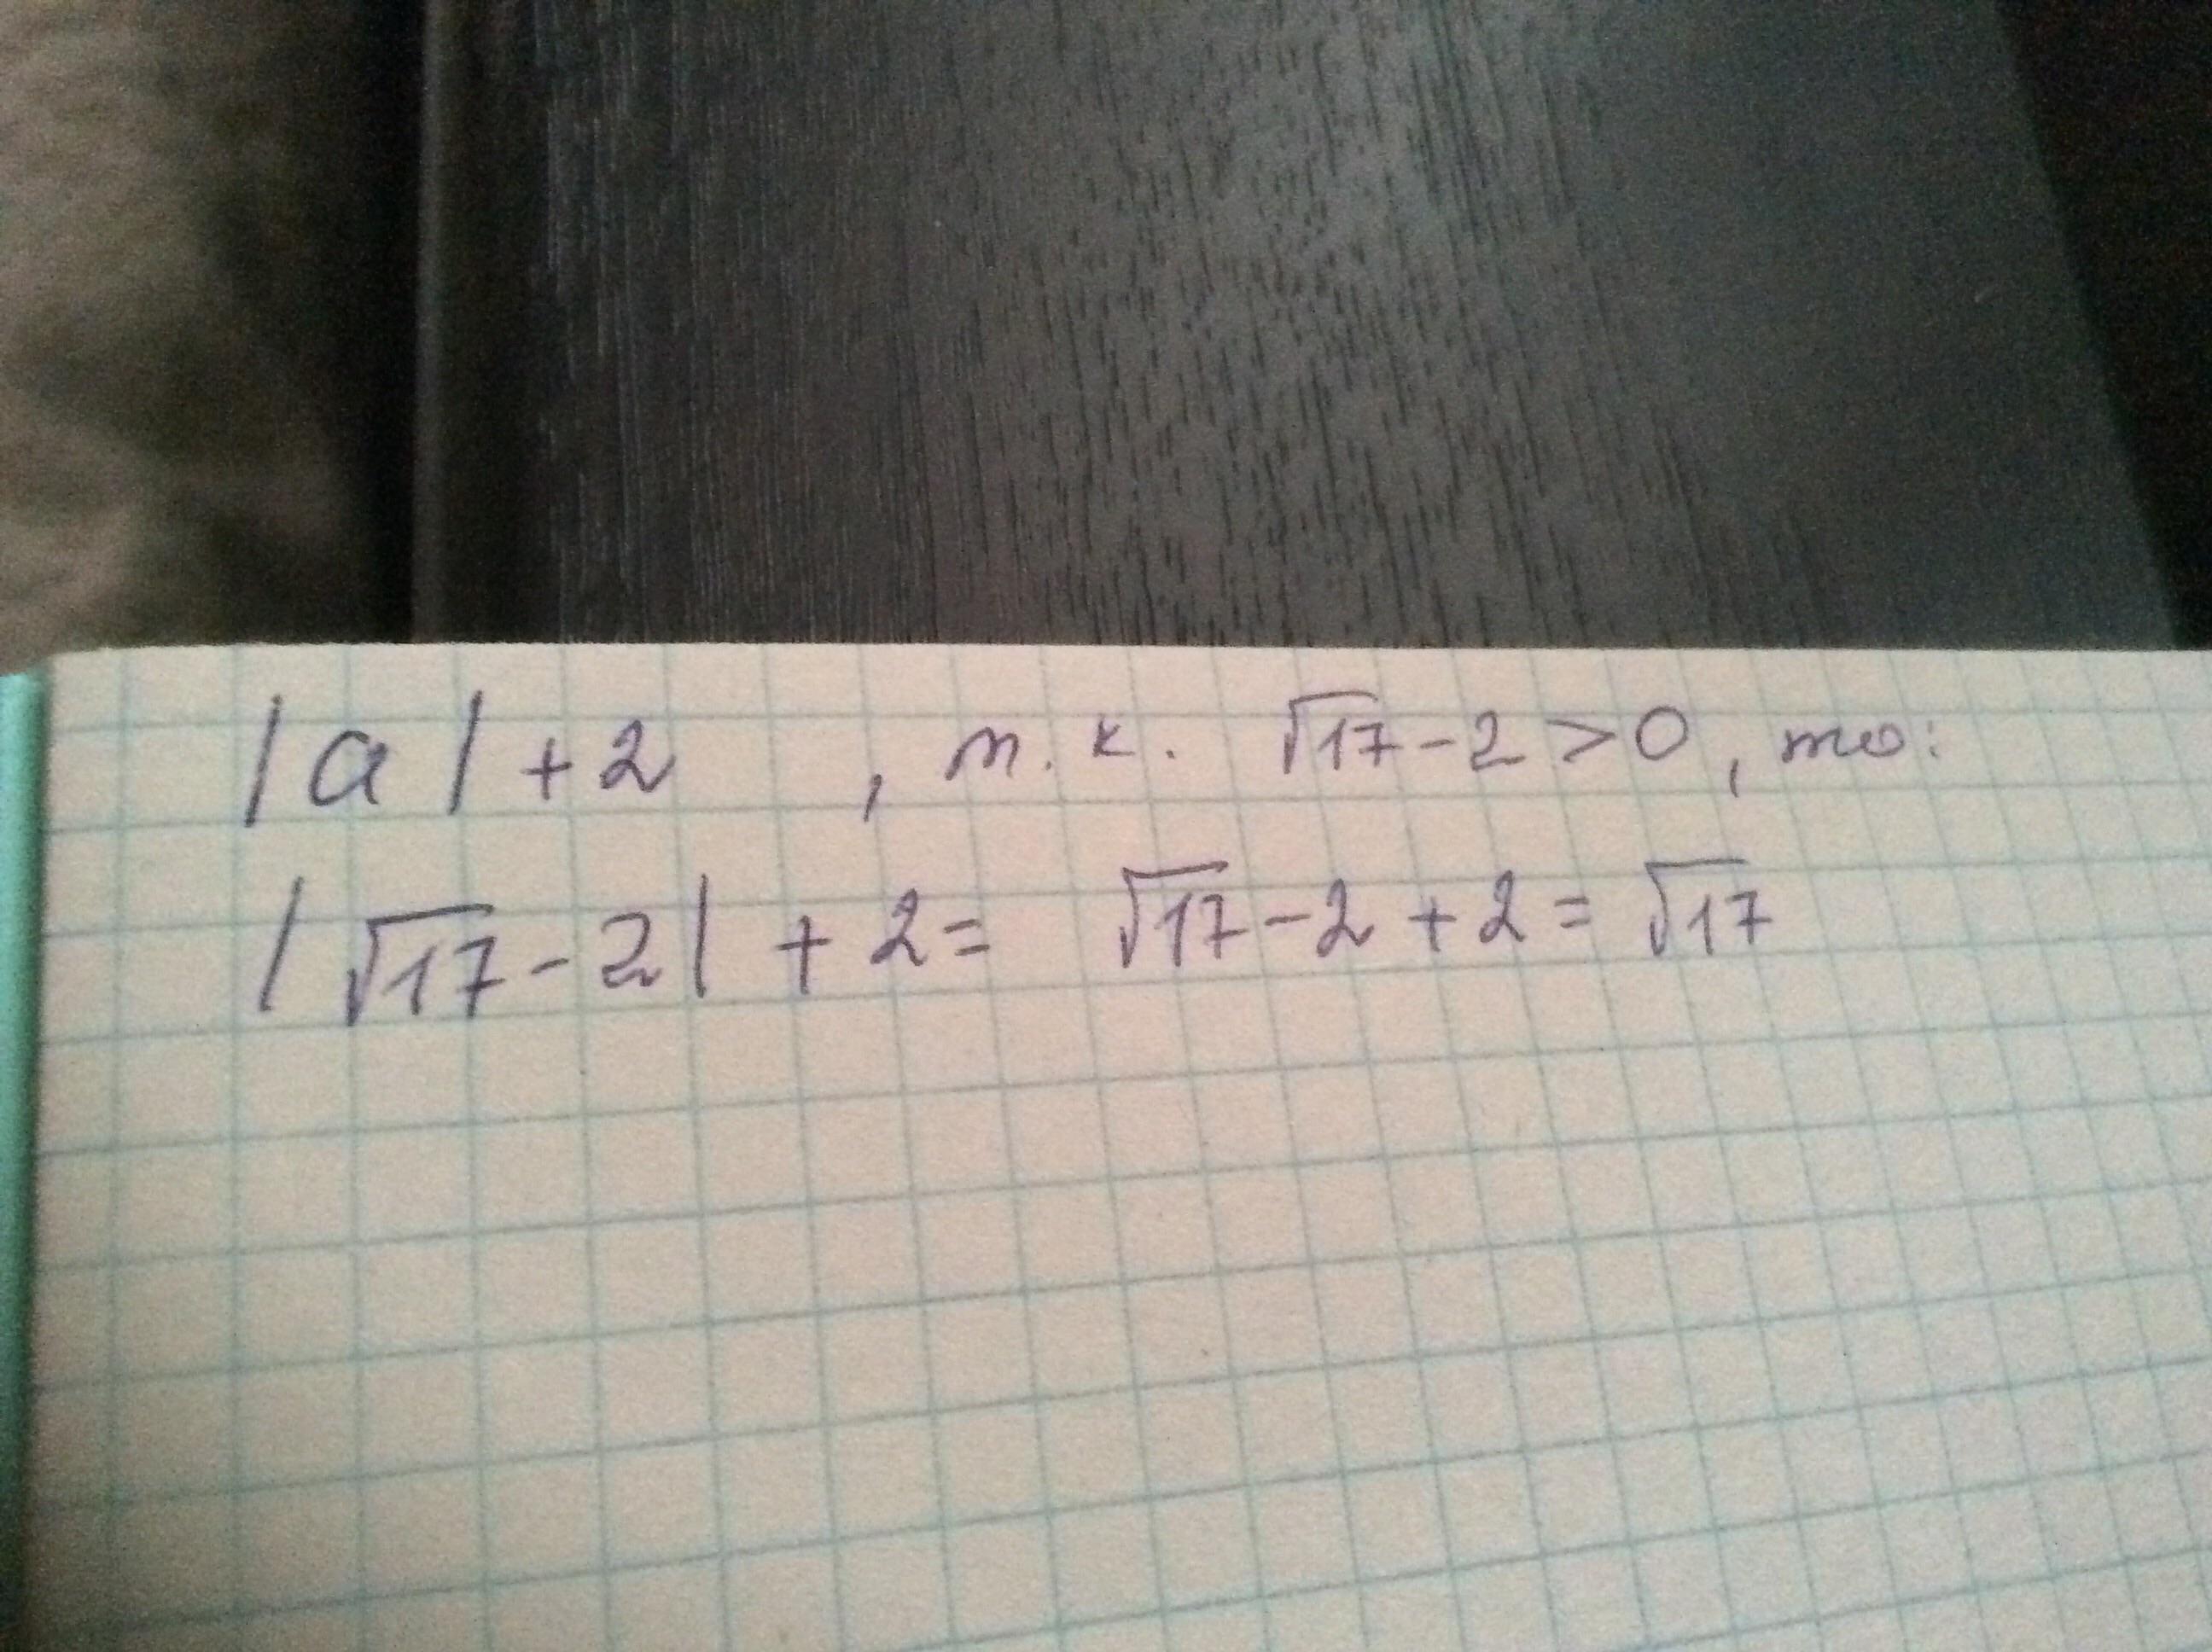 |a|+2 , т.к. √17-2>0, то:
|√17-2|+2= √17-2+2=√17